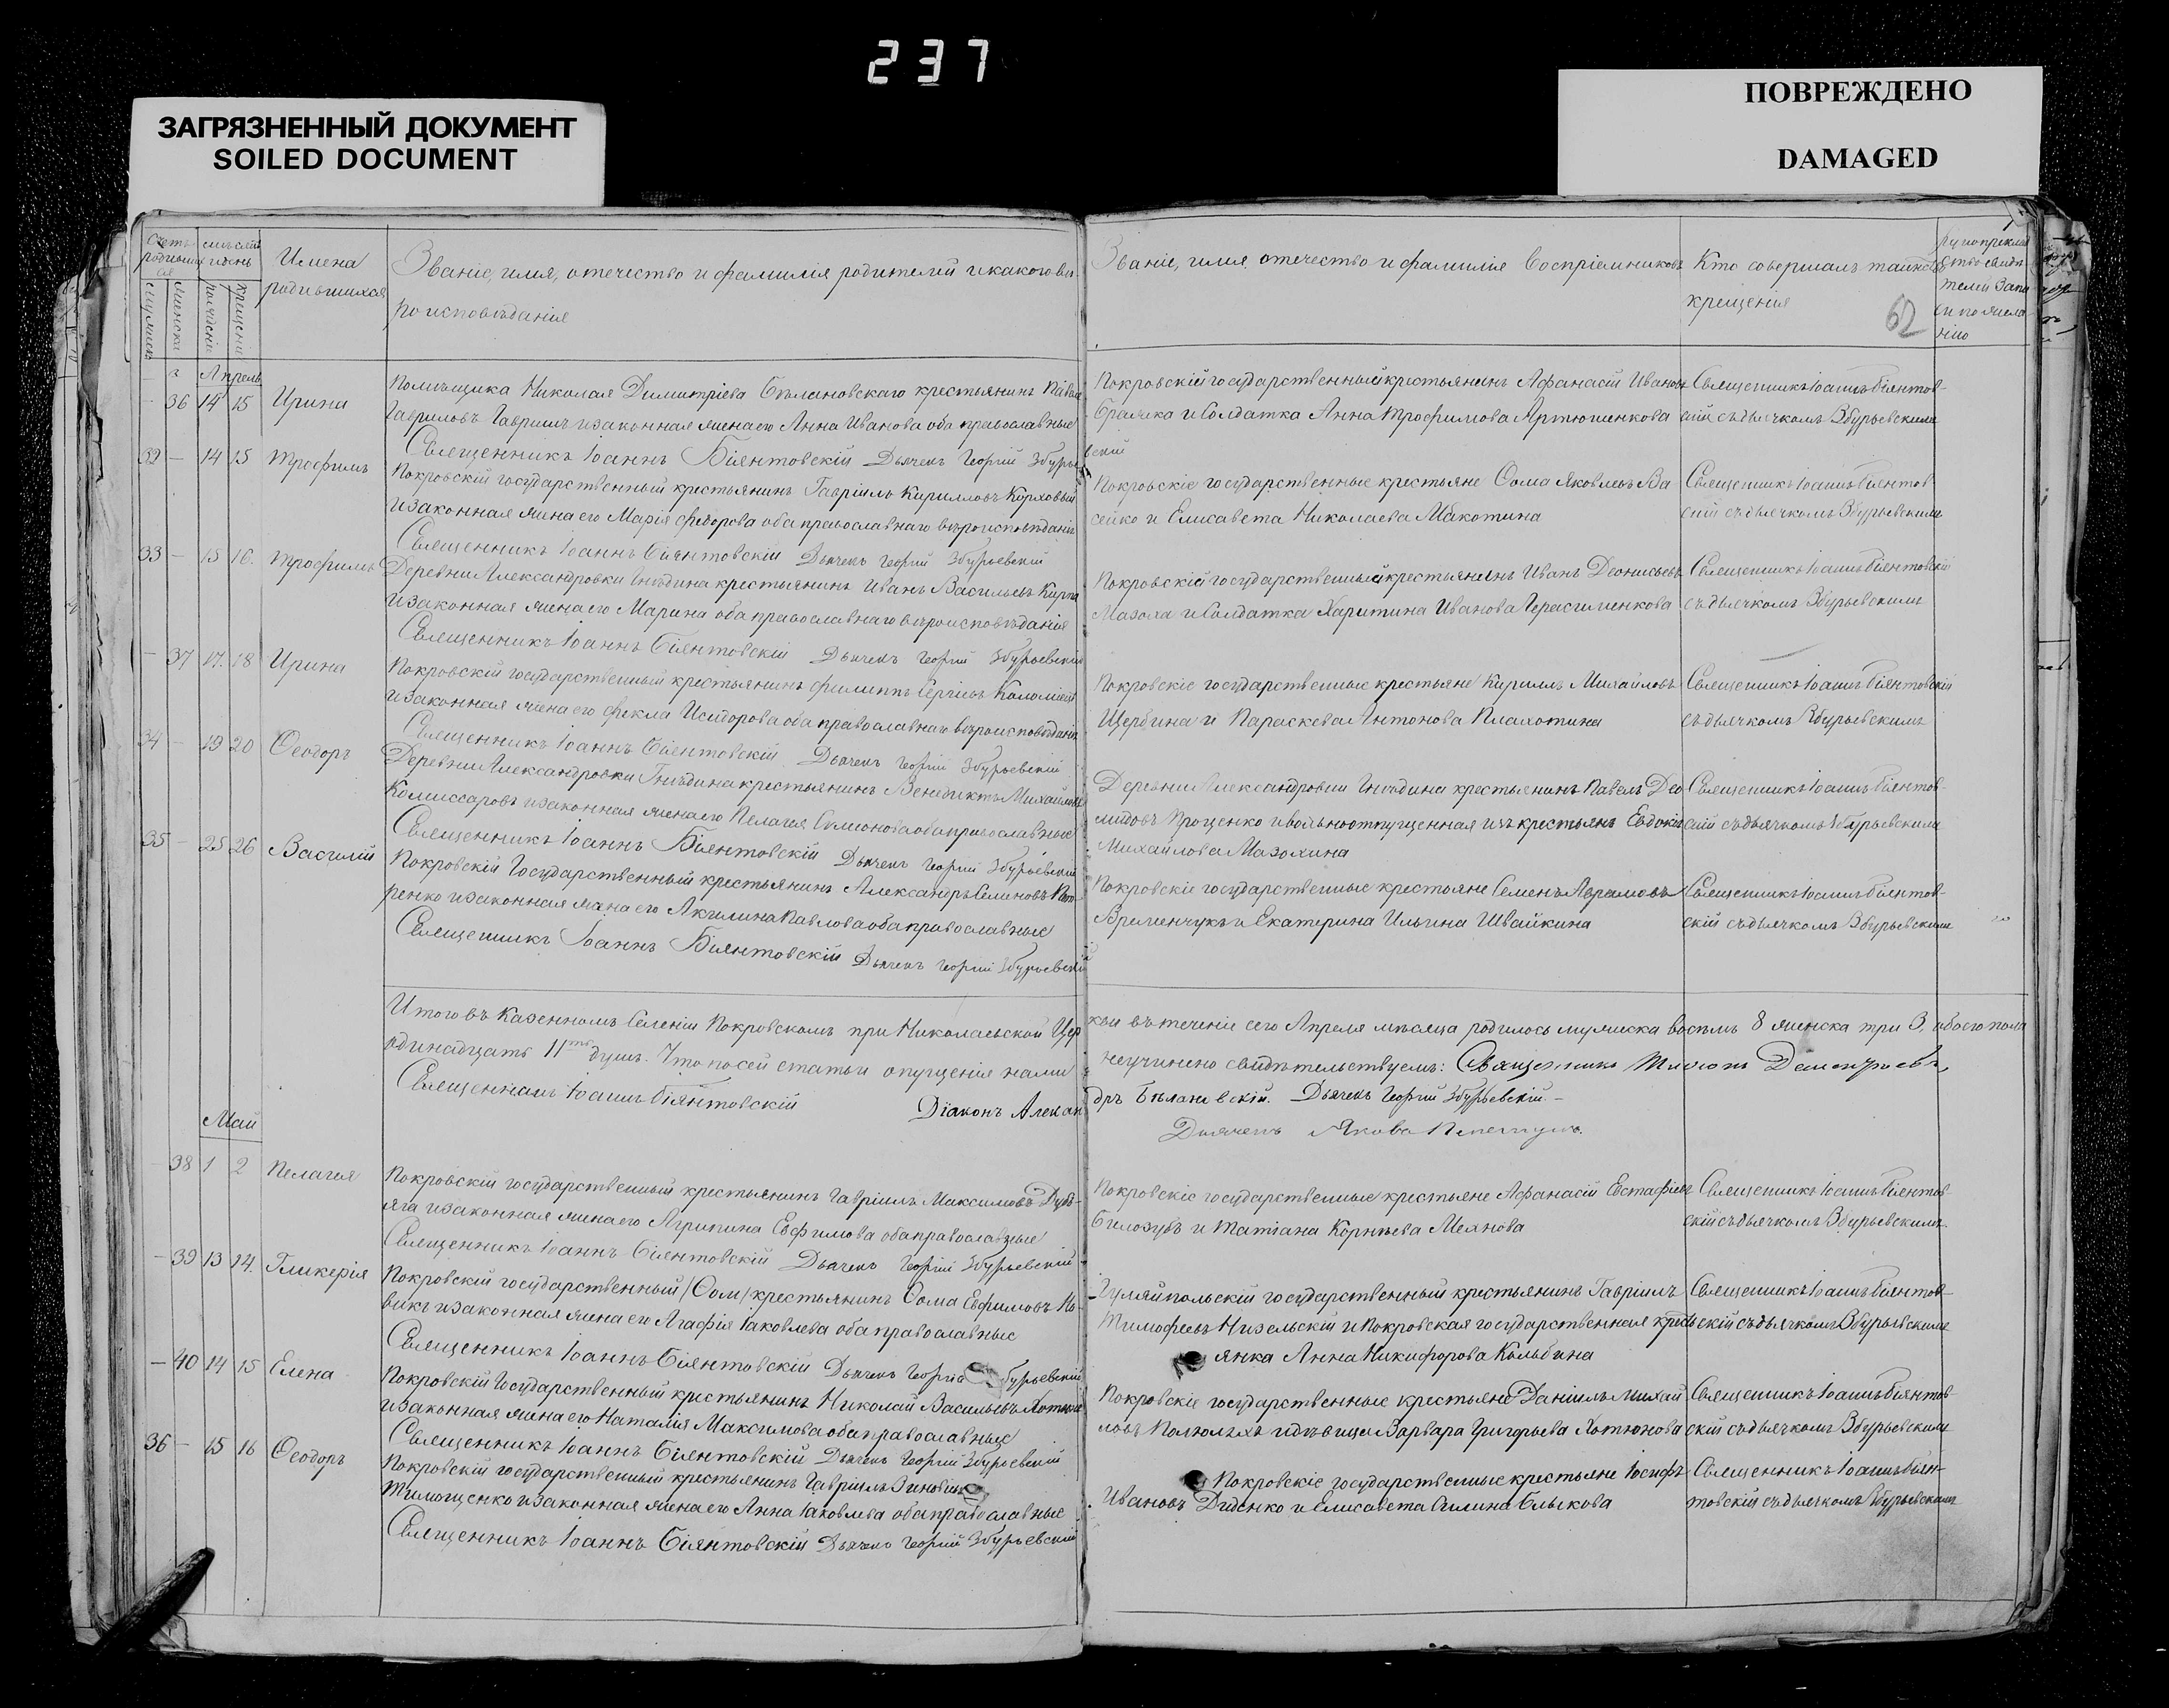 237
ЗАГРЯЗНЕННЫЙ ДОКУМЕНТ
SOILED DOCUMENT
ПОВРЕЖДЕНО
DAMAGED
Имена родившихся
Званіе, имя, отечество и фамилія родителей и какого вѣроисповѣданія
Званіе, имя отечество и фамилія воспріемниковъ
Кто совершалъ таинство крещенія
62
Апрель
36 14 15 Ирина
Помѣщика Николая Димитріева Бѣлановскаго крестьянинъ Павелъ
Гавриловъ Гавришъ и законная жена его Анна Иванова оба православные
Священникъ Іоаннъ Біянтовскій Дьячекъ Георгій Збурьевскій
Покровскій государственный крестьянинъ Афанасій Ивановъ
и Солдатка Анна Трофимова Артюшенкова
Священникъ Іоаннъ Біянтовскій съ дьячкомъ Збурьевскимъ
32 — 14 15 Трофимъ
Покровскій государственный крестьянинъ Гавріилъ Кирилловъ
и законная жена его Марія Федорова оба православнаго вѣроисповѣданія
Священникъ Іоаннъ Біянтовскій Дьячекъ Георгій Збурьевскій
Покровскіе государственные крестьяне Ѳома Яковлевъ Васейко и Елисавета Николаева Макотина
Священникъ Іоаннъ Біянтовскій съ дьячкомъ Збурьевскимъ
33 — 15 16. Трофимъ
Деревни Александровки Гнѣдина крестьянинъ Иванъ Васильевъ
и законная жена его Марина оба православнаго вѣроисповѣданія
Священникъ Іоаннъ Біянтовскій Дьячекъ Георгій Збурьевскій
Покровскій государственный крестьянинъ Иванъ Деонисьевъ
Мазоха и Солдатка Харитина Иванова Герасименкова
Священникъ Іоаннъ Біянтовскій
съ дьячкомъ Збурьевскимъ
— 37 17. 18 Ирина
Покровскій государственный крестьянинъ Филиппъ Сергіевъ
и законная жена его Фекла Исидорова оба православнаго вѣроисповѣданія
Священникъ Іоаннъ Біянтовскій Дьячекъ Георгій Збурьевскій
Покровскіе государственные крестьяне Кириллъ Михайловъ
Щербина и Параскева Антонова Плахотина
Священникъ Іоаннъ Біянтовскій
съ дьячкомъ Збурьевскимъ
34 — 19 20 Ѳеодоръ
Деревни Александровки Гнѣдина крестьянинъ Венедиктъ Михайловъ
Комиссаровъ и законная жена его Пелагея Симионова оба православные
Священникъ Іоаннъ Біянтовскій Дьячекъ Георгій Збурьевскій
Деревни Александровки Гнѣдина крестьянинъ Павелъ
Проценко и вольноотпущенная изъ крестьянъ Евдокія
Михайлова Мазохина
Священникъ Іоаннъ Біянтовскій съ дьячкомъ Збурьевскимъ
35 — 25 26 Василій
Покровскій Государственный крестьянинъ Александръ Семеновъ
и законная жена его Акилина Павлова оба православные
Священникъ Іоаннъ Біянтовскій Дьячекъ Георгій Збурьевскій
Покровскіе государственные крестьяне Семенъ Аврамовъ
Временчукъ и Екатерина Ильина Швайкина
Священникъ Іоаннъ Біянтовскій съ дьячкомъ Збурьевскимъ
Итого въ Казенномъ Селеніи Покровскомъ при Николаевской Церкви въ теченіе сего Апреля мѣсяца родилось мужеска восемь 8 женска три 3, обоего пола
одинадцать 11ть душъ. Что по сей статьи опущенія нами неучинено свидѣтельствуемъ: Священникъ
Священникъ Іоаннъ Біянтовскій Діаконъ Александръ Бѣлановскій. Дьячекъ Георгій Збурьевскій. —
Дьячекъ Яковъ
Май
— 38 1 2 Пелагея
Покровскій государственный крестьянинъ Гавріилъ Максимовъ
и законная жена его Агрипина Евфимова оба православные
Священникъ Іоаннъ Біянтовскій Дьячекъ Георгій Збурьевскій
Покровскіе государственные крестьяне Афанасій Евстафіевъ
Бѣлозубъ и Татіана Корнѣева
Священникъ Іоаннъ Біянтовскій съ дьячкомъ Збурьевскимъ
— 39 13 14. Гликерія
Покровскій государственный /Ѳом/ крестьянинъ Ѳома Евфимовъ
и законная жена его Агафія Іаковлева оба православные
Священникъ Іоаннъ Біянтовскій Дьячекъ Георгій Збурьевскій
Гуляйпольскій государственный крестьянинъ Гавріилъ
Тимофеевъ Низельскій и Покровская государственная крестьянка Анна Никифорова Колыбина
Священникъ Іоаннъ Біянтовскій съ дьячкомъ Збурьевскимъ
— 40 14 15 Елена
Покровскій Государственный крестьянинъ Николай Васильевъ
и законная жена его Наталія Максимова оба православные
Священникъ Іоаннъ Біянтовскій Дьячекъ Георгій Збурьевскій
Покровскіе государственные крестьяне Даніилъ Михайловъ и дѣвица Варвара Григорьева Хотюнова
Священникъ Іоаннъ Біянтовскій съ дьячкомъ Збурьевскимъ
36 — 15 16 Ѳеодоръ
Покровскій государственный крестьянинъ Гавріилъ Зиновіевъ
Тимошенко и законная жена его Анна Іаковлева оба православные
Священникъ Іоаннъ Біянтовскій Дьячекъ Георгій Збурьевскій
Покровскіе государственные крестьяне Іосифъ
Ивановъ Диденко и Елисавета Быкова
Священникъ Іоаннъ Біянтовскій съ дьячкомъ Збурьевскимъ